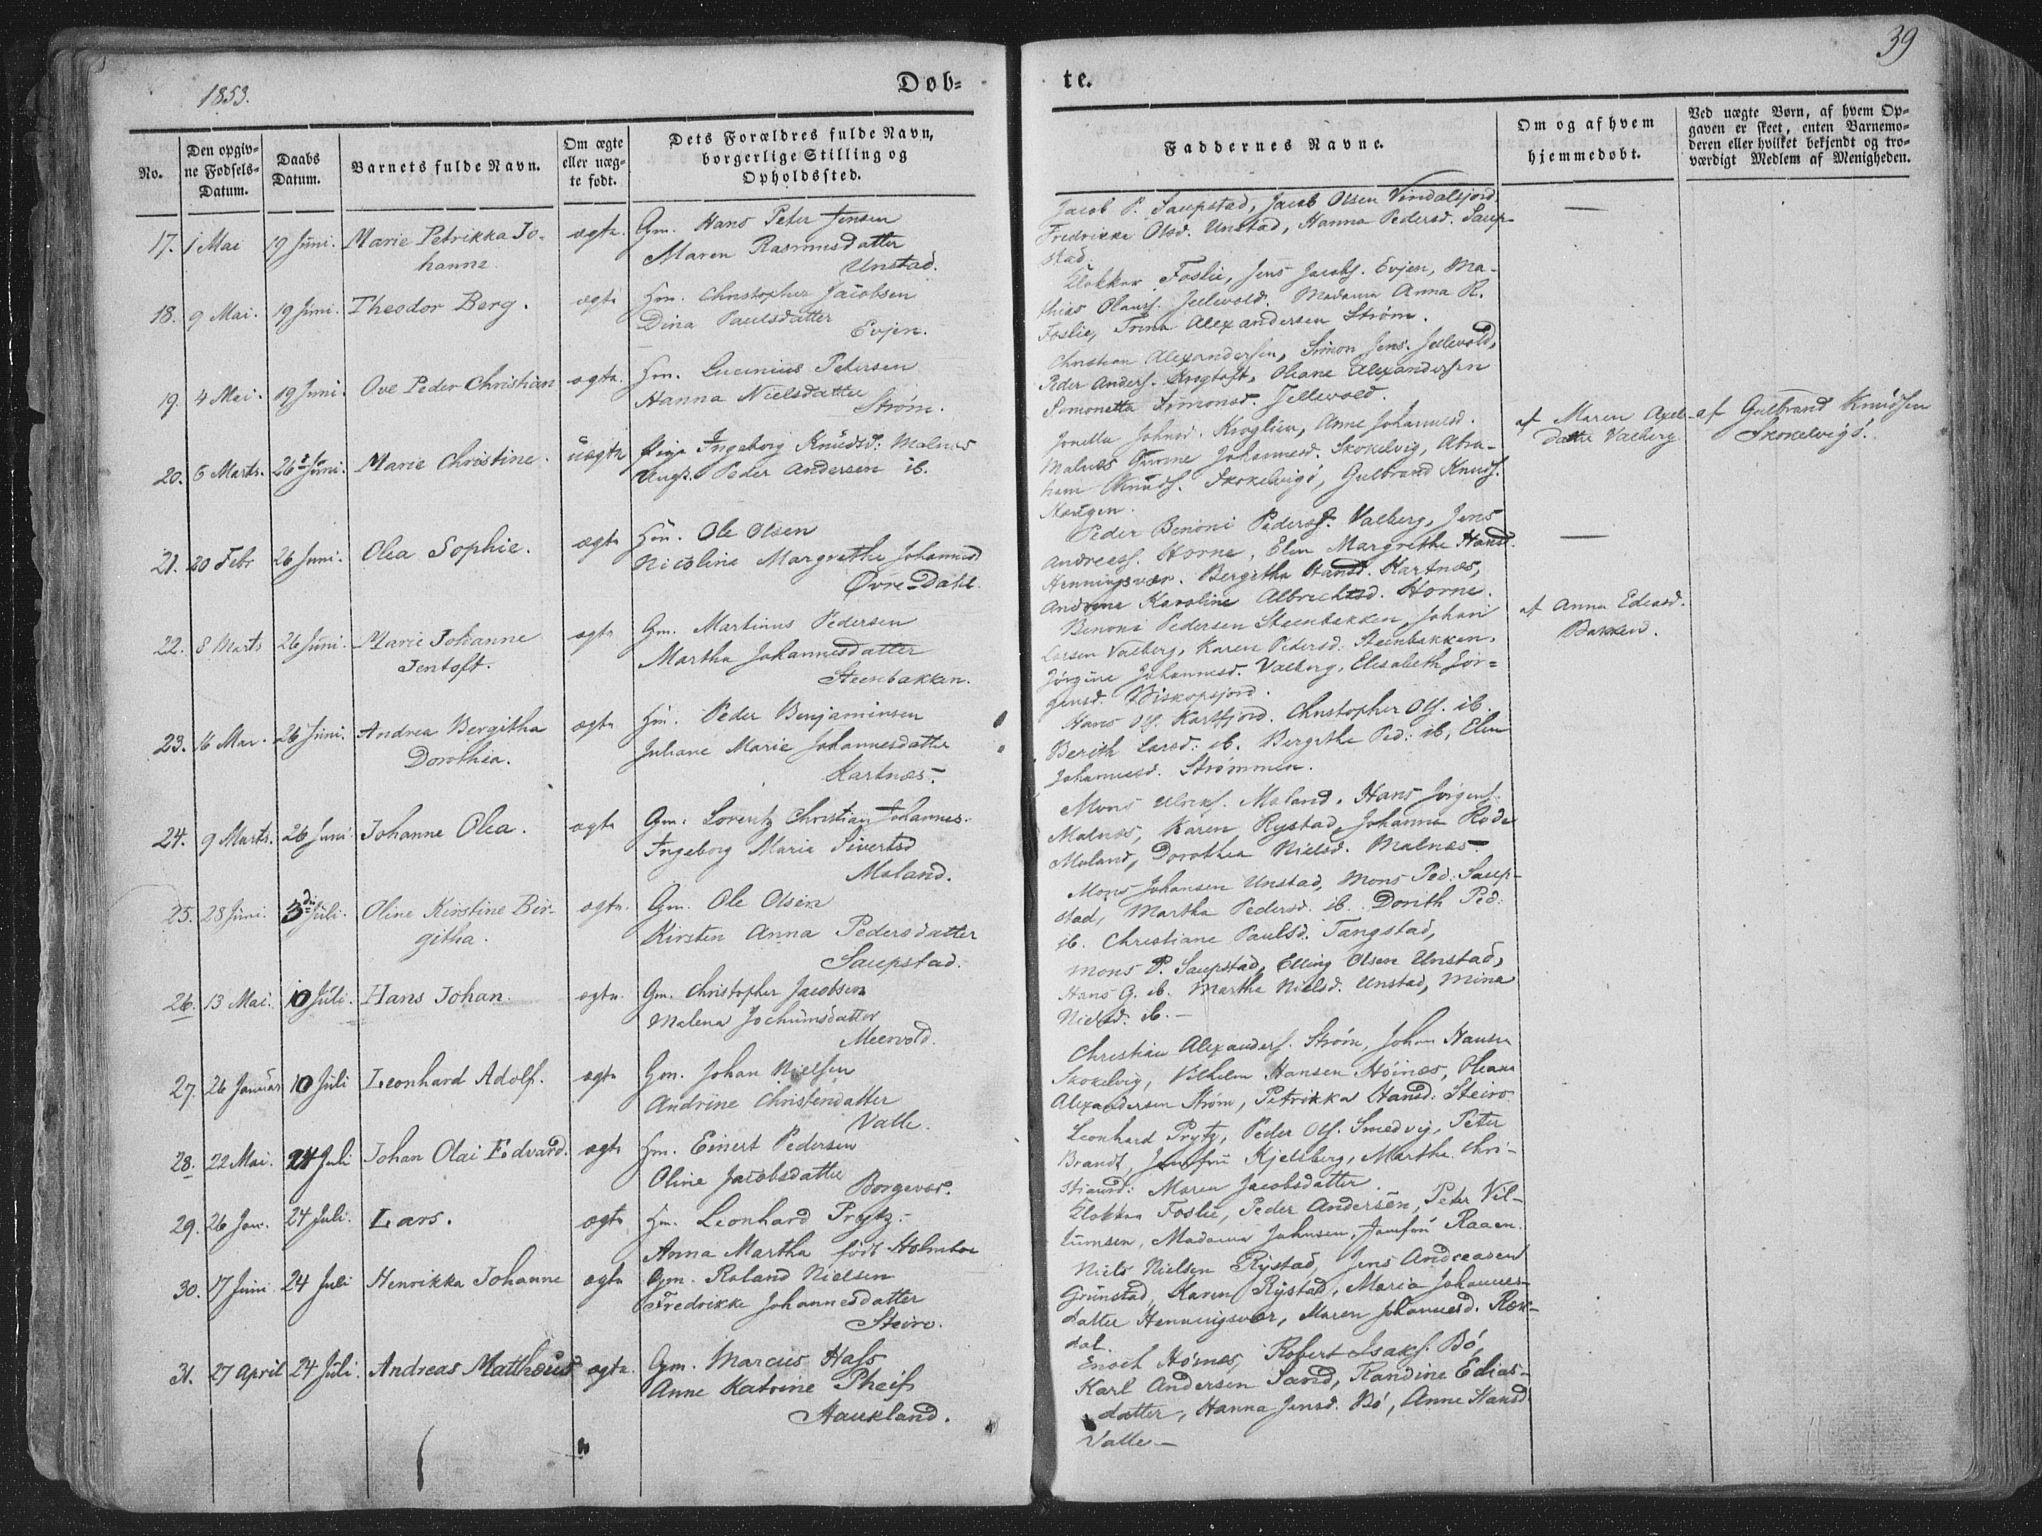 1853.
Døb-
No.
Den opgiv-
ne Fødsels-
Datum.
Daabs
Datum.
Barnets fulde Navn.
Om ægte
eller uæg-
te født.
Dets Forældres fulde Navn,
borgerlige Stilling og
Opholdssted.
17. 1 Mai 19 Juni. Marie Petrikka Jo-
hanne.
ægte. Gm. Hans Peter Jensen
Maren Rasmusdatter
Unstad.
18. 9 Mai. 19 Juni. Theodor Berg.
ægte Hm. Christopher Jacobsen
Dina Paulsdatter
Evjen.
19. 4 Mai. 19 Juni. Ove Peder Christian
ægte. Hm. Lucinius Petersen
Hanna Nielsdatter
Strøm.
20. 6 Marts. 26 Juni. Marie Christine.
uægte Pige Ingeborg Knudsd: Malnæs
Ungk. Peder Andersen ib.
21. 20 Febr 26 Juni. Olea Sophie.
ægte Hm. Ole Olsen
Nicoline Margrethe Johannesd
Øvre Dahl.
22. 8 Marts 26 Juni. Marie Johanne
Jentoft.
ægte Gm. Martinus Pedersen
Martha Johannesdatter
Steenbakken.
23. 16 Mar. 26 Juni. Andrea Bergitha
Dorothea.
ægte Hm. Peder Benjaminsen
Juliane Marie Johannesdatter
Kartnæs.
24. 9 Marts. 26 Juni Johanne Olea.
ægte Gm. Lorentz Christian Johannes.
Ingeborg Maria Sivertsd
Moland.
25. 28 Juni. 3die Juli. Oline Kirstine Bir-
githa.
ægte. Gm. Ole Olsen
Kirsten Anna Pedersdatter
Saupstad.
26. 13 Mai. 10 Juli. Hans Johan.
ægte. Gm. Christopher Jacobsen
Malena Jochumsdatter
Meervold.
27. 26 Januar 10 Juli Leonhard Adolf.
ægte Gm. Johan Nielsen
Andrine Christendatter
Valle.
28. 22 Mai. 24 Juli Johan Olai Edvard.
ægte Hm. Einert Pedersen
Oline Jacobsdatter
Borgevær.
29. 26 Jan. 24 Juli. Lars.
ægte Hm. Leonhard Prytz.
Anna Martha født Holmboe
30. 17 Juni 24 Juli Henrikka Johanne
ægte Gm. Roland Nielsen
Fredrikke Johannesdatter
Steiro.
31. 27 April 24 Juli. Andreas Matthæus
ægte. Gm. Marcus Hass
Anne Katrine Pheif
Haukland.
39
te.
Faddernes Navne.
Om og af hvem
hjemmedøbt.
Ved uægte Børn, af hvem Op-
gaven er skeet, enten Barnemo-
deren eller hvilket bekjendt og tro-
værdigt Medlem af Menigheden.
Jacob P. Saupstad, Jacob Olsen Vindalsjord.
Fredrikke Olsd. Unstad, Hanna Pedersd. Saup-
stad.
Klokker Foslie, Jens Jacobs. Evjen, Ma-
thias Olaus. Jellevold. Madame Anna R.
Foslie, Trina Alexandersen Strøm.
Christian Alexandersen, Simon Jens. Jellevold,
Peder Anders. Krogtoft, Oleane Alexandersen
Simonetta Simonsd. Jellevold.
Jonetta Johnsd. Kroglien, Anne Johannesd.
Malnæs Johannesd. Skokelvig, Abra-
ham Knuds. Skokelvig, Gulbrand Knuds.
Haugen.
af Maren Axel-
datte Valberg.
af Gulbrand Knudsen
Skokelvig.
Peder Benoni Peders. Valberg, Jens
Andreas. Horne, Elen Margrethe Hansd.
Henningsvær. Bergitha Hansd. Kartnæs,
Andrina Karoline Albrechtsd. Horne.
Benoni Pedersen Steenbakken, Johan
Larsen Valberg, Karen Pedersd. Steenbakken.
Jørgine Johannesd. Valberg, Elisabeth Jør-
gensd. Biskopsjord.
af Anna Ediasd.
Bakken.
Hans Ols. Kartfjord. Christopher Ols. ib.
Berith Larsd: ib. Bergithe Ped: ib, Elen
Johannesd. Strømmen.
Mons Ulriks. Moland. Hans Jørgens.
Malnæs, Karen Rystad, Johanna Rode
Moland, Dorothea Nielsd. Malnæs.
Mons Johansen Unstad, Mons Ped: Saup-
stad, Martha Pedersd. ib. Dorith Ped:
ib. Christiane Paulsd. Tangstad,
Mons P. Saupstad, Elling Olsen Unstad,
Hans G. ib. Martha Nielsd. Unstad, Mina
Nielsd: ib.
Christian Alexanders. Strøm, Johan Hansen
Skokelvig, Vilhelm Hansen Høinæs, Oleana
Alexandersen Strøm, Petrikka Hansd: Steiro
Leonhard Prytz, Peder Ols. Smedvig, Peter
Brandt, Jomfru Kjelsberg, Marthe Chri-
stiansd: Maren Jacobsdatter.
Klokker Foslie, Peder Andersen, Peter Vil-
lumsen, Madame Johnsen, Jomfru Raaen.
Niels Nielsen Rystad, Jens Andreasen
Grunstad, Karen Rystad, Maria Johannes-
datter Henningsvær, Maren Johannesd. Røk-
dal.
Enoch Høinæs, Robert Isaks. Bø,
Karl Andersen Sand, Randine Edias-
datter, Hanna Jensd. Bø, Anne Hansd
Valle